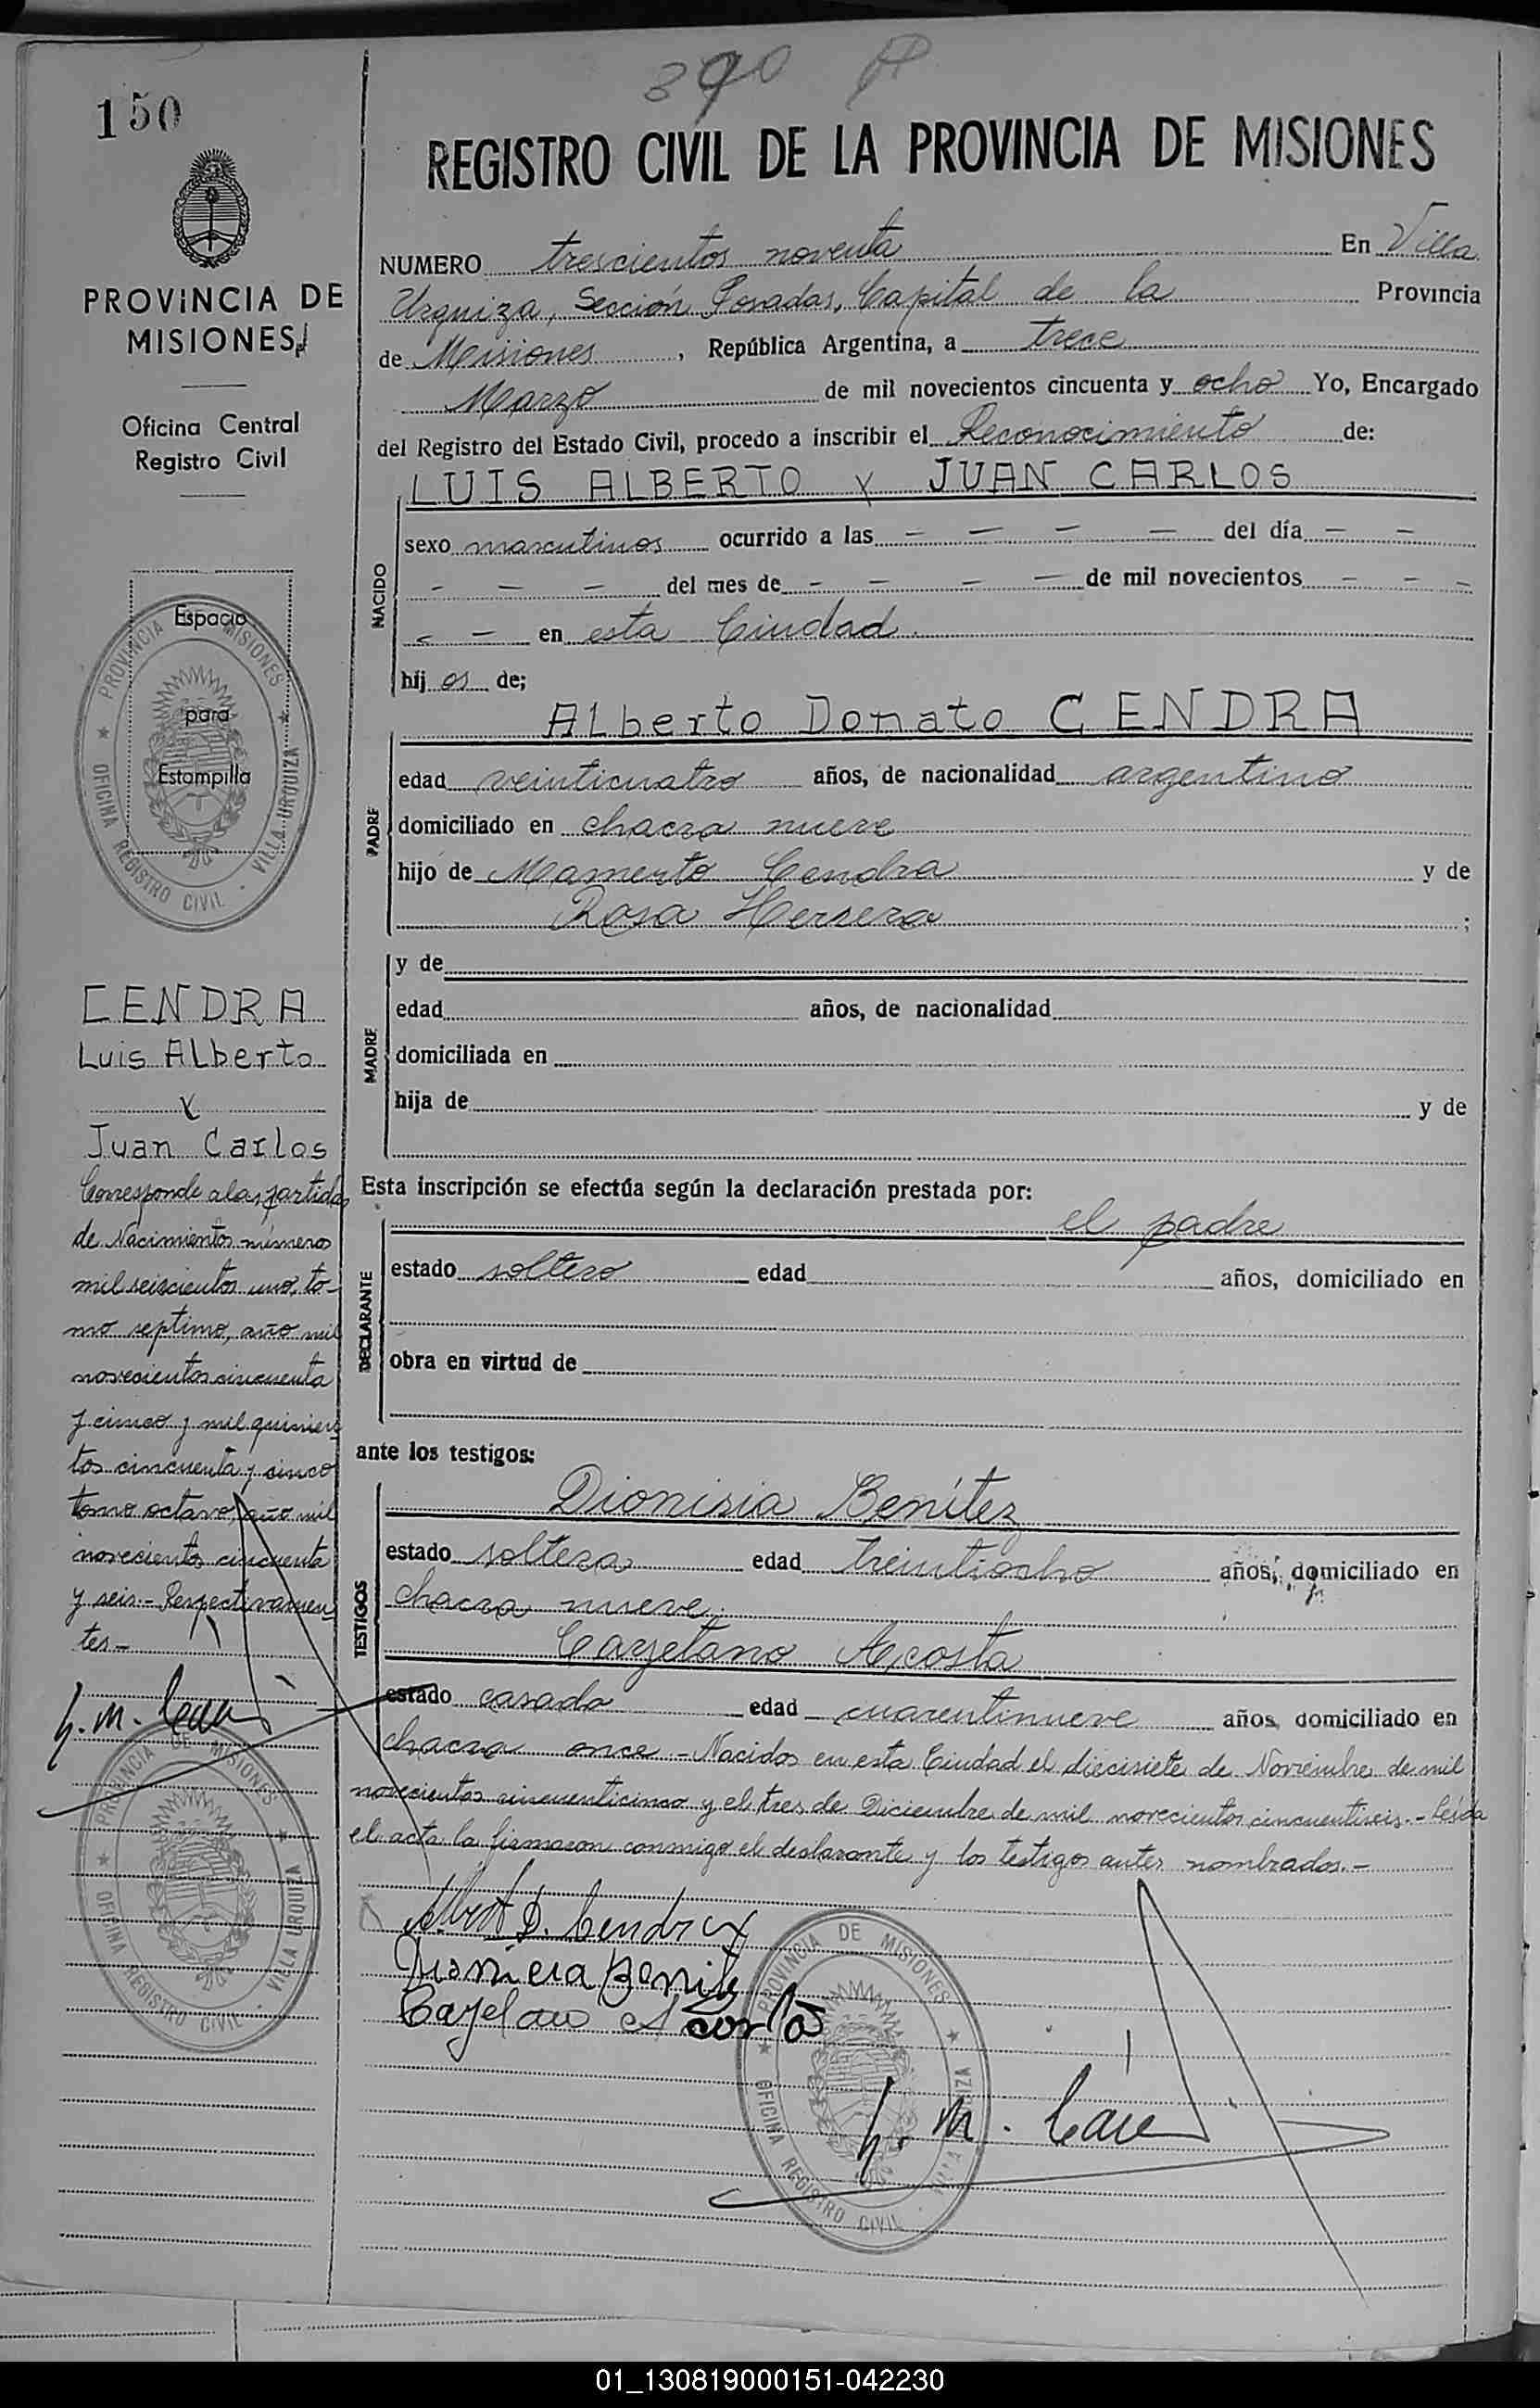 390
150
REGISTRO CIVIL DE LA PROVINCIA DE MISIONES
PROVINCIA DE
MISIONES
Oficina Central
Registro Civil
NUMERO trescientos noventa En Villa
Urquiza, Sección Posadas, Capital de la Provincia
de Misiones, República Argentina, a trece
Marzo de mil novecientos cincuenta y ocho Yo, Encargado
del Registro del Estado Civil, procedo a inscribir el Reconocimiento de:
LUIS ALBERTO y JUAN CARLOS
NACIDO
sexo masculinos ocurrido a las - - - - del día - -
- - - del mes de - - - - de mil novecientos - - -
- - en esta Ciudad.
hijos de;
Alberto Donato CENDRA
PADRE
edad veinticuatro años, de nacionalidad argentino
domiciliado en chacra nueve
hijo de Mamerto Cendra y de
Rosa Herrera ;
MADRE
y de
edad años, de nacionalidad
domiciliada en
hija de y de
Esta inscripción se efectúa según la declaración prestada por:
el padre
DECLARANTE
estado soltero edad años, domiciliado en
obra en virtud de
ante los testigos:
TESTIGOS
Dionisia Benítez
estado soltera edad treintiocho años, domiciliado en
chacra nueve.
Cayetano Acosta
estado casado edad cuarentinueve años domiciliado en
chacra once - Nacidos en esta Ciudad el diecisiete de Noviembre de mil
novecientos cincuenticinco y el tres de Diciembre de mil novecientos cincuentiseis. - Leída
el acta la firmaron conmigo el declarante y los testigos antes nombrados. -
Albert D. Cendra
Dionicia Benite
Cayetano Acosta
Espacio
para
Estampilla
PROVINCIA DE MISIONES
OFICINA REGISTRO CIVIL - VILLA URQUIZA
CENDRA
Luis Alberto
y
Juan Carlos
Corresponde a las partidas
de Nacimientos números
mil seiscientos uno, to-
mo septimo, año mil
novecientos cincuenta
y cinco y mil quinien
tos cincuenta y cinco
tomo octavo, año mil
novecientos cincuenta
y seis. - Respectivamen
tes -
PROVINCIA DE MISIONES
OFICINA REGISTRO CIVIL - VILLA URQUIZA
PROVINCIA DE MISIONES
OFICINA REGISTRO CIVIL
01_130819000151-042230